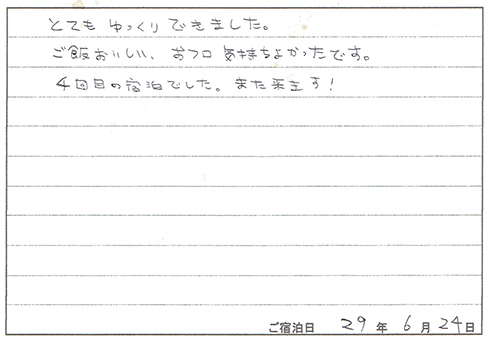 とてもゆっくりできました。
ご飯おいしい、おフロ気持ちよかったです。
4回目の宿泊でした。また来ます!
ご宿泊日 29年6月24日